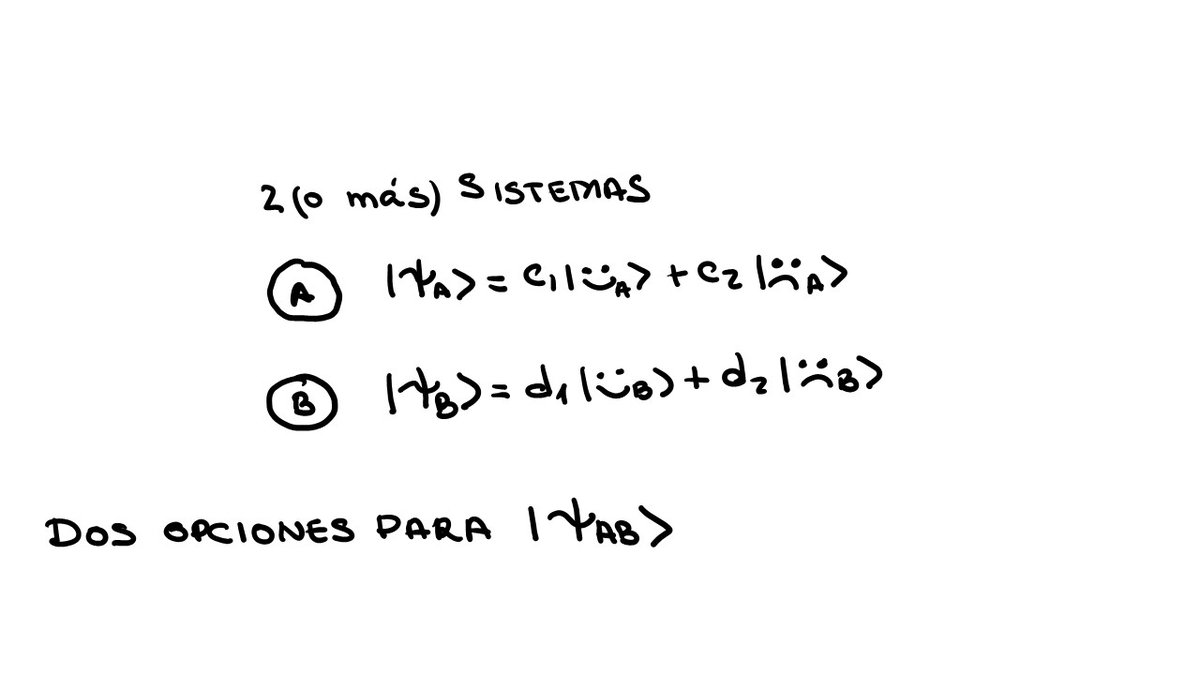 2 (o más) SISTEMAS
A |ψ_A> = c₁|:)_A> + c₂|:(_A>
B |ψ_B> = d₁|:)_B> + d₂|:(_B>
DOS OPCIONES PARA |ψ_AB>